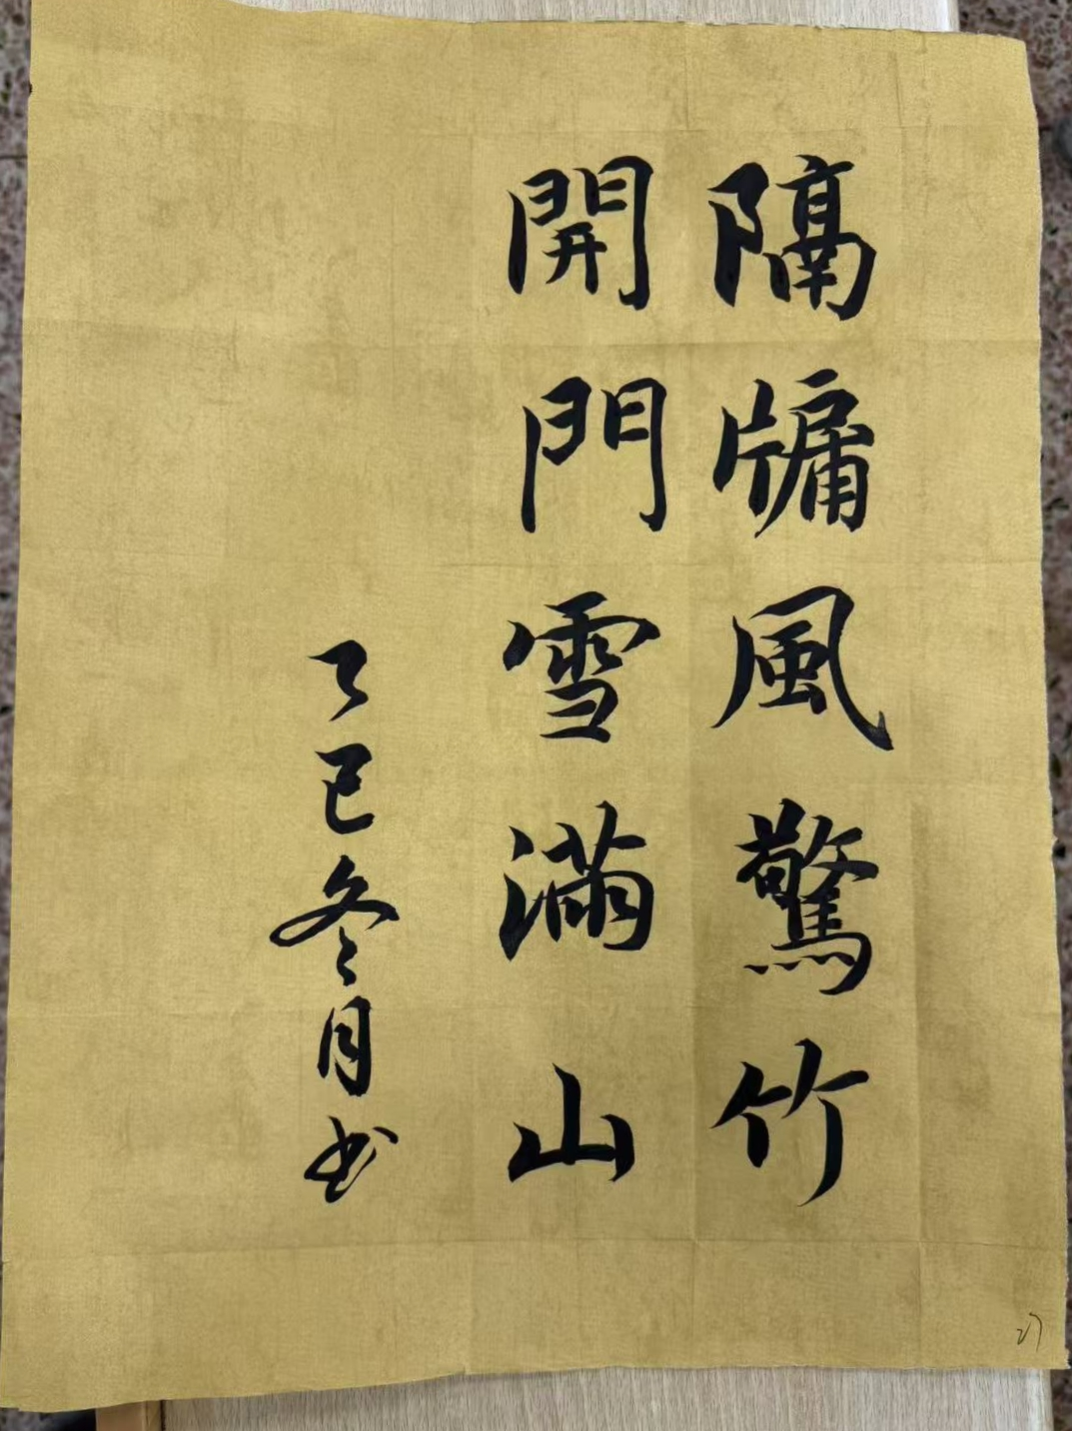 隔牗風驚竹
開門雪滿山
乙巳冬月书
27